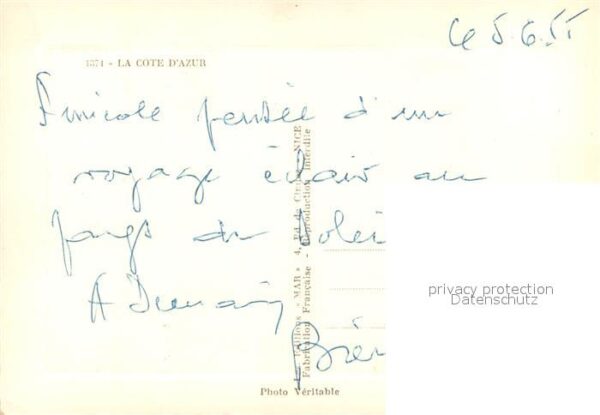 Le 5.6.55
1374 - LA COTE D'AZUR
Amicale pensée d'un
voyage éclair au
pays du Solei
A Demain
Bien
Editions « MAR » 4, Bd de NICE
Fabrication Française - Reproduction Interdite
privacy protection
Datenschutz
Photo Véritable